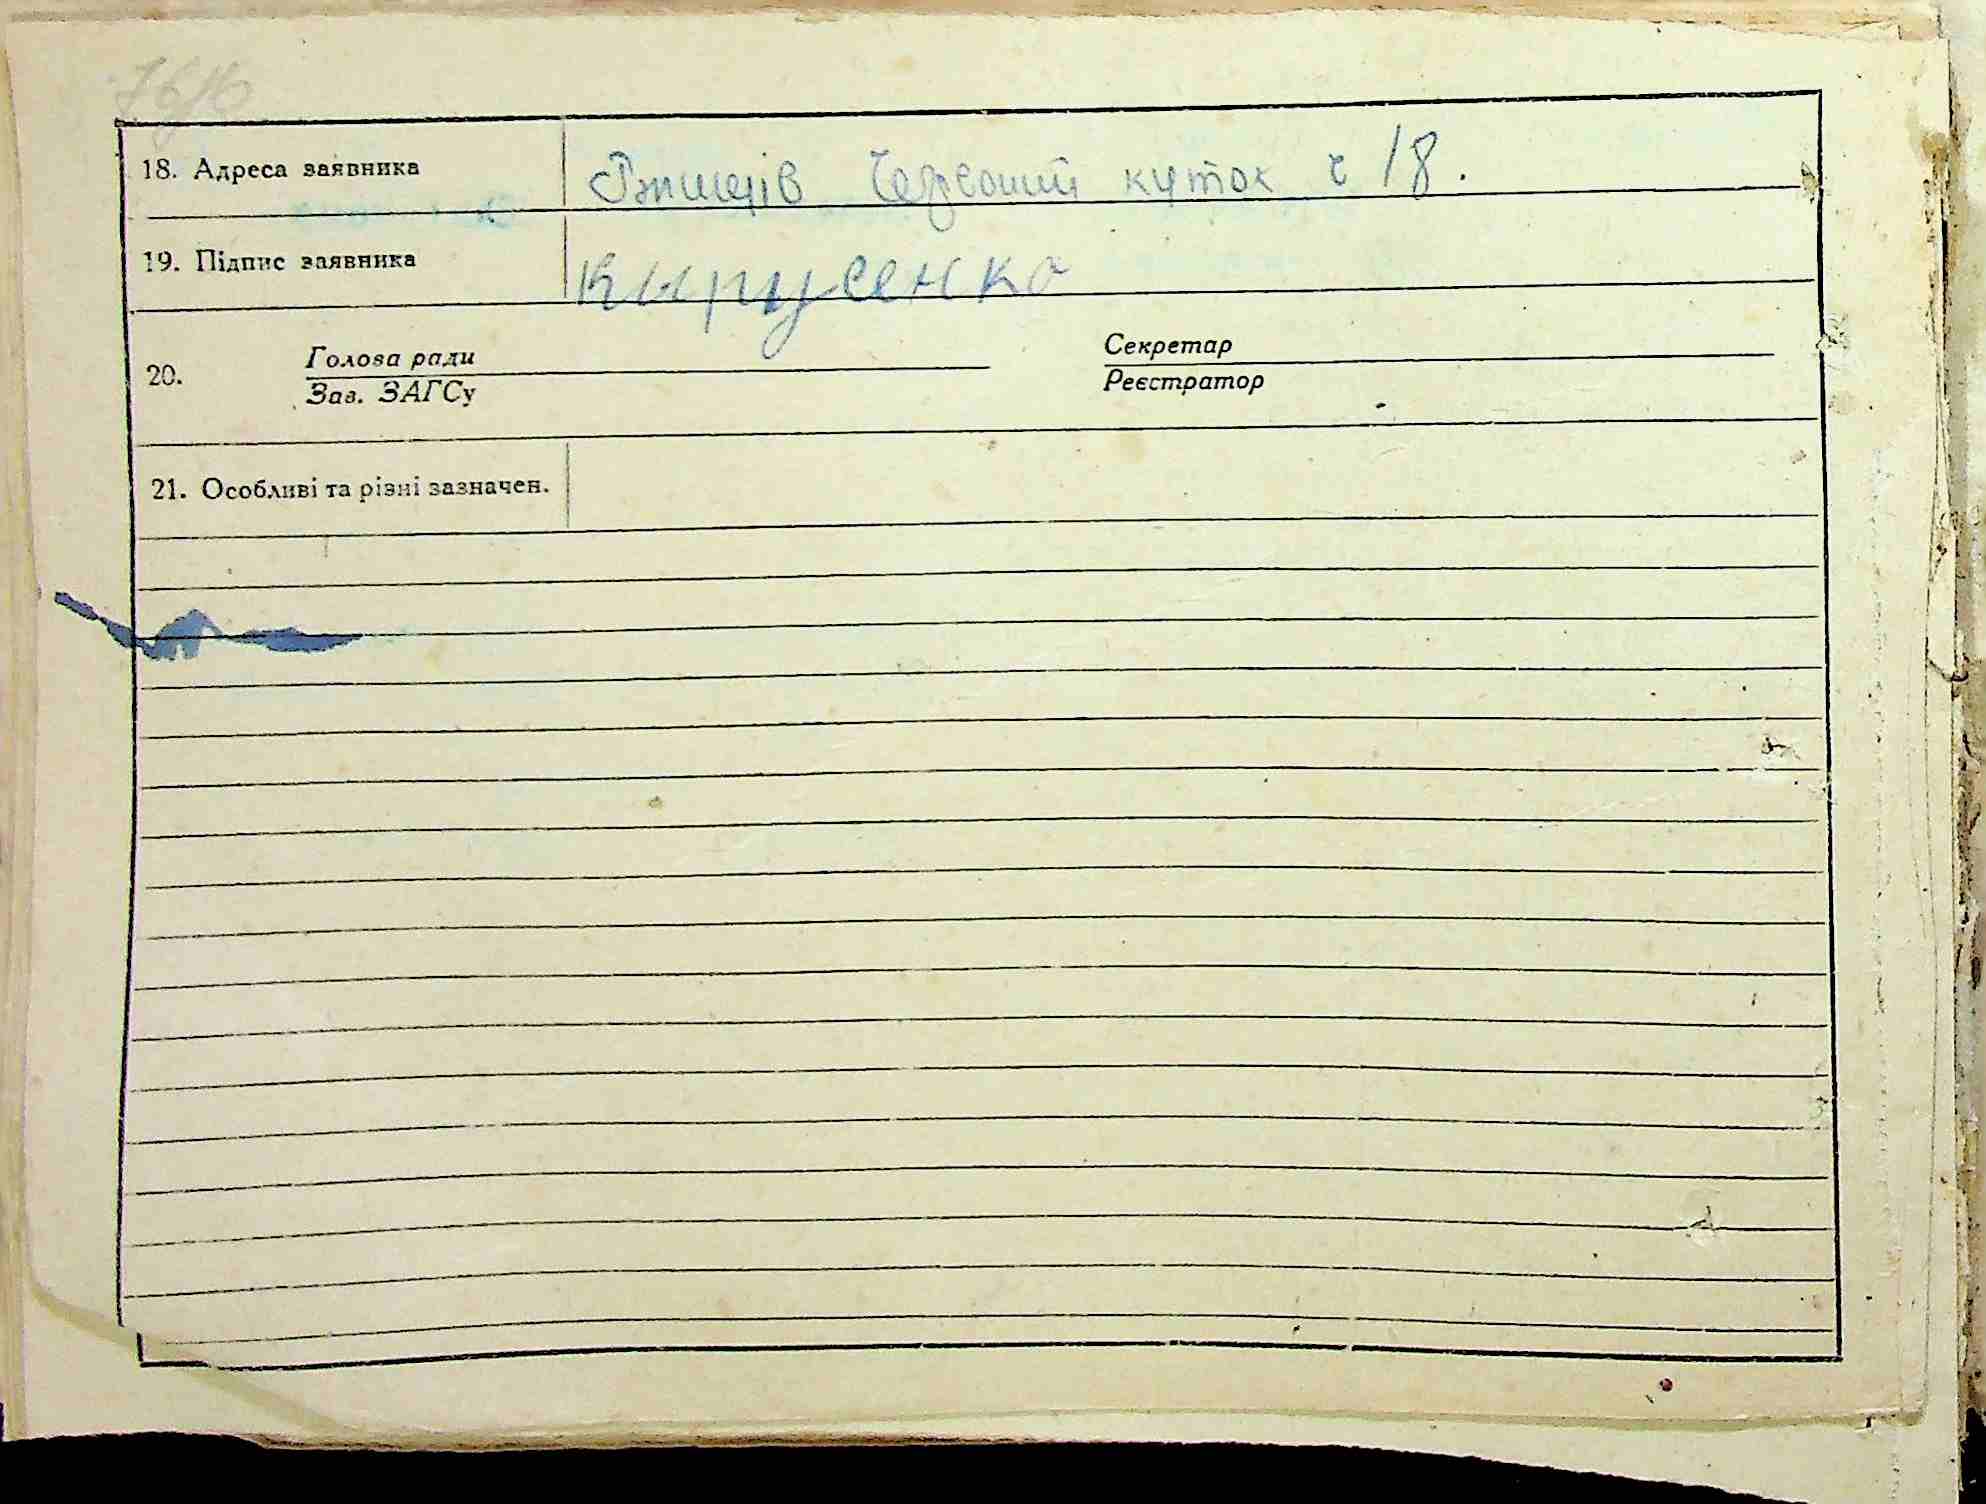 18. Адреса заявника Ржищів Червоний куток ч 18.
19. Підпис заявника Кырусенко
20. Голова ради Секретар
Зав. ЗАГСу Реєстратор
21. Особливі та різні зазначен.